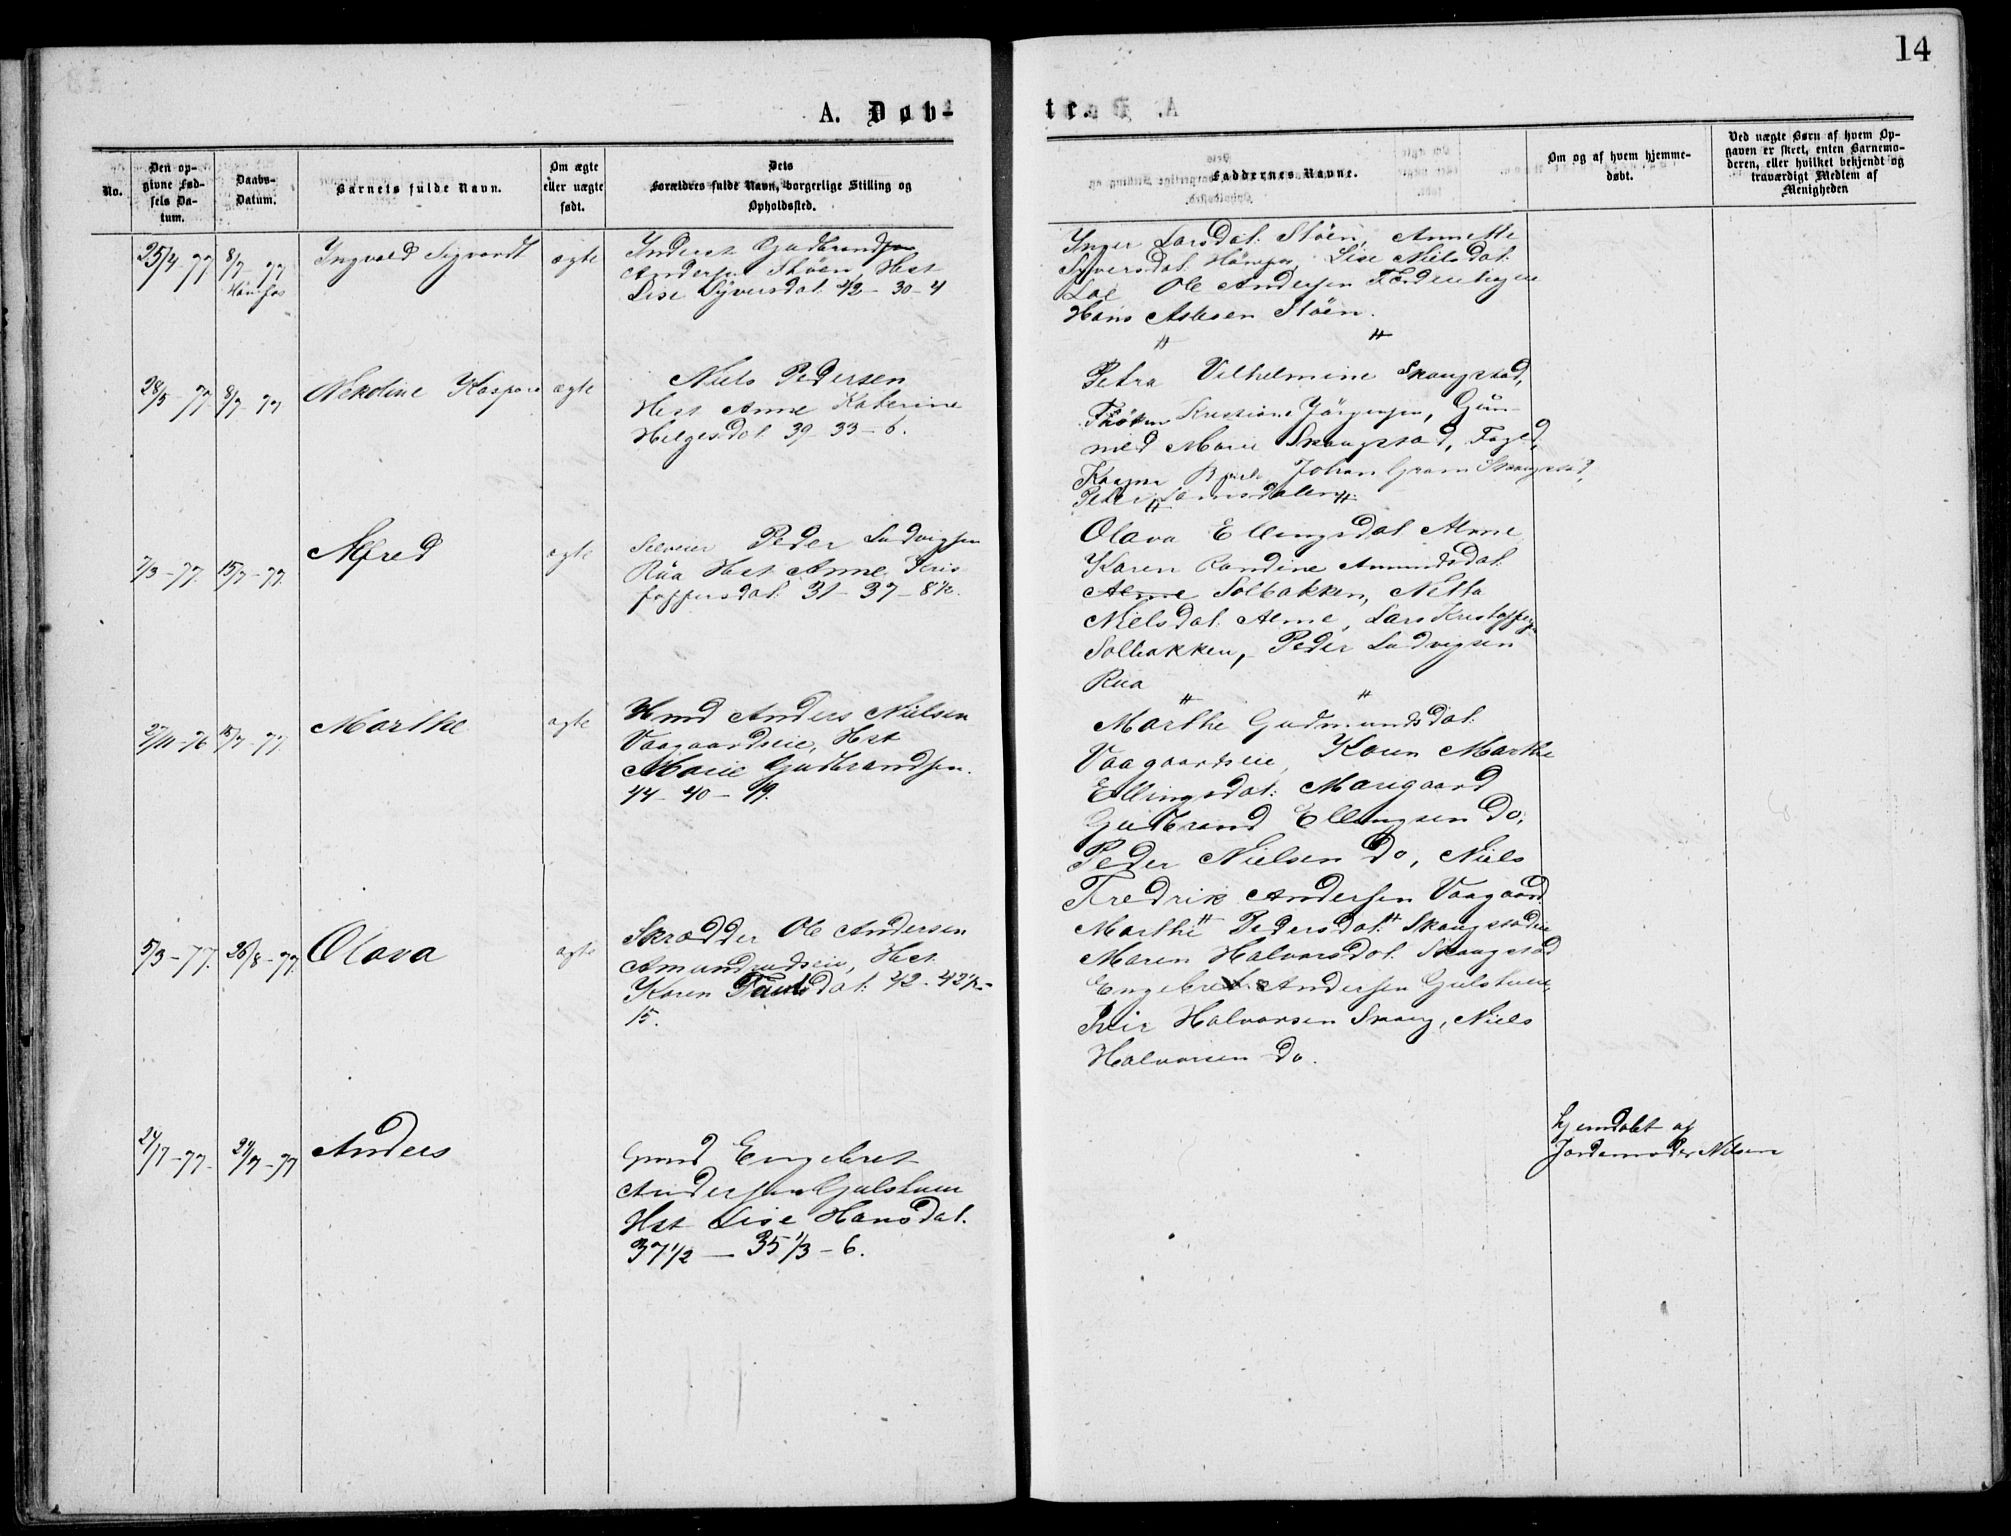 14
A. Døb-
te.
No.
Den op-
givne Fød-
sels Da-
tum.
Daabs-
Datum.
Barnets fulde Navn.
Om ægte
eller uægte
født.
Dets
Forældres fulde Navn, borgerlige Stilling og
Opholdssted.
Faddernes Navne.
Om og af hvem hjemme-
døbt.
Ved uægte Børn af hvem Op-
gaven er skret, enten Barnemo-
deren, eller hvilket bekjendt og
troværdigt Medlem af
Menigheden
25/4 77
8/7 77
Hønefos
Ingvald Sigvardt
ægte
Inderst Gudbrand
Andersen Støen, Hst
Lise Syversdat. 42 - 30 - 4
Inger Larsdat. Støen, Annette
Syversdat. Hønefos, Lise Nilsdat.
Loe, Ole Andersen
Hans Støen.
" "
28/5 - 77
8/7 - 77
Kaspara
ægte
Niels Pedersen
Hst Anne Katerine
Helgesdat. 39 - 33 - 6.
Petra Vilhelmine Skaugstad,
Frøken Kristiane Jørgensen, Gun-
nild Marie Skaugstad, Foged,
Johan Gram Skaugstad,
Peder
" "
7/3 - 77.
15/7 - 77.
Alfred
ægte
Peder Ludvigsen
Rua Hst Anne Kris
toffersdat. 31 - 37 - 8½.
Olava Ellingsdat. Alme
Karen Randine Amundsdat.
Alme Solbakken, Netta
Nielsdat. Alme, Lars Kristoffersen
Solbakken, Peder Ludvigsen
Rua
" "
27/11 - 76
15/7 - 77.
Marthe
ægte
Hmd Anders Nielsen
Vaagaardseie, Hst
Marie Gudbrandsen.
44 - 40 - 19.
Marthe Gudmundsdat.
Vaagaardseie, Karen Marthe
Ellingsdat. Moregaard
Gudbrand Ellingsen do,
Peder Nielsen do, Niels
Fredrik Andersen Vaagaard
" "
5/3 - 77.
26/8 - 77.
Olava
ægte
Skrædder Ole Andersen
Amundrudseie, Hst
Karen dat. 42 - 42½ -
15.
Marthe Pedersdat. Skaugstadeie
Maren Halvorsdat. Skaugstad
Engebret Andersen Gulstuen,
Iver Halvorsen Skaug, Niels
Halvorsen do.
24/7 - 77.
24/7 - 77
Anders
Gmd Engebret
Andersen Gulstuen
Hst Lise Hansdat.
37½ - 35⅓ - 6.
hjemdøbt af
Jordemoder Nilsen